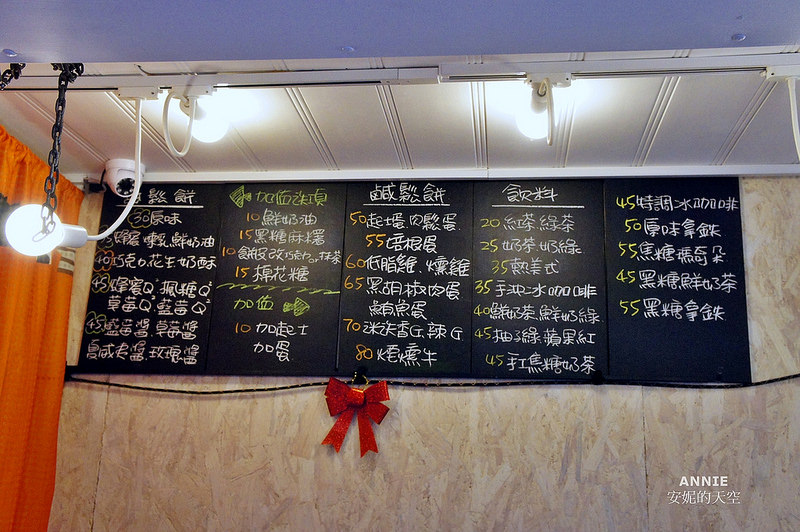 鬆餅
30原味
蜂蜜、煉乳、鮮奶油
巧克力、花生、奶酥
45蜂蜜Q²、楓糖Q²
草莓Q²、藍莓Q²
藍莓醬、草莓醬
夏威夷醬、玫瑰醬
加值選項
10鮮奶油
15黑糖麻糬
10餅皮改巧克力or抹茶
15棉花糖
加值
10加起士
加蛋
鹹鬆餅
50起士蛋、肉鬆蛋
55培根蛋
60低脂雞、燻雞
65黑胡椒肉蛋
鮪魚蛋
70迷迭香G、辣G
80煙燻牛
飲料
20紅茶、綠茶
25奶茶、奶綠
35熱美式
35手沖冰咖啡
40鮮奶茶、鮮奶綠
45柚子綠、蘋果紅
45手工焦糖奶茶
45特調冰咖啡
50原味拿鐵
55焦糖瑪奇朵
45黑糖鮮奶茶
55黑糖拿鐵
ANNIE
安妮的天空